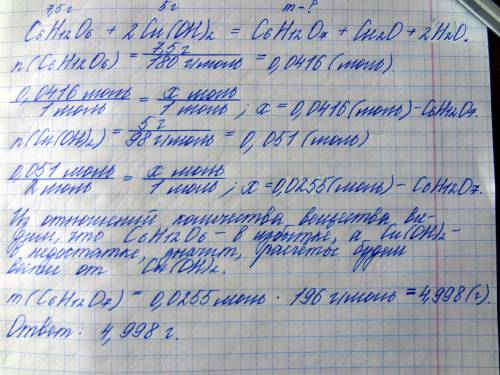 7,5г 5г m-?
C6H12O6 + 2Cu(OH)2 = C6H12O7 + Cu2O + 2H2O.
n(C6H12O6) = 7,5г / 180 г/моль = 0,0416 (моль).
0,0416 моль / 1 моль = x моль / 1 моль ; x = 0,0416 (моль) - C6H12O7.
n(Cu(OH)2) = 5г / 98 г/моль = 0,051 (моль)
0,051 моль / 2 моль = x моль / 1 моль ; x = 0,0255 (моль) - C6H12O7.
Из отношений количества вещества ви-
дим, что C6H12O6 - в избытке, а Cu(OH)2 -
в недостатке, значит, расчеты будем
вести от Cu(OH)2.
m(C6H12O7) = 0,0255 моль · 196 г/моль = 4,998 (г).
Ответ: 4,998 г.